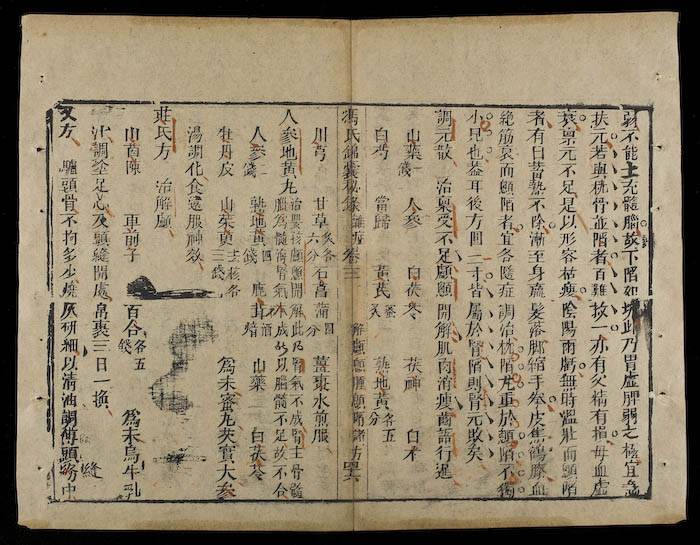 氣不能上充髓腦故下陷如坑此乃胃虛脾弱之極宜急
扶元若與枕骨並陷者百難救一亦有父精有損母血虛
衰稟元不足是以形容枯瘦陰陽兩虧無時溫壯而顖陷
者有白蒸熱不除漸至身疏髮落脚縮手拳皮焦鶴膝血
絶筋衰而顱陷者宜各隨症調治枕陷尤重於顖陷不獨
小兒也蓋耳後方圓二寸皆屬於腎陷則腎元敗矣
調元散 治稟受不足顱顖開解肌肉消瘦齒語行遲
山藥 人參 白茯苓 茯神 白朮
白芍 當歸 黃芪 熟地黃 各五分
馮氏錦囊秘錄 雜症卷三 解顱顖腫顖陷諸方
川芎 甘草 各六分 石菖蒲 四分 薑棗水煎服
人參地黃丸 治嬰孩顱顖開解此乃腎氣不成腎主骨髓
腦為髓海腎氣不成所以腦髓不足故不合
人參 熟地黃 鹿茸 山藥 白茯苓
牡丹皮 山茱萸 各三錢 為末蜜丸芡實大參
湯調化食遠服神效
莊氏方 治解顱
山南陳 車前子 百合 各五錢 為末烏牛乳
汁調塗足心及頭縫開處帛裹三日一換
又方 驢頭骨不拘多少燒灰研細以清油調傅頭縫中
縫